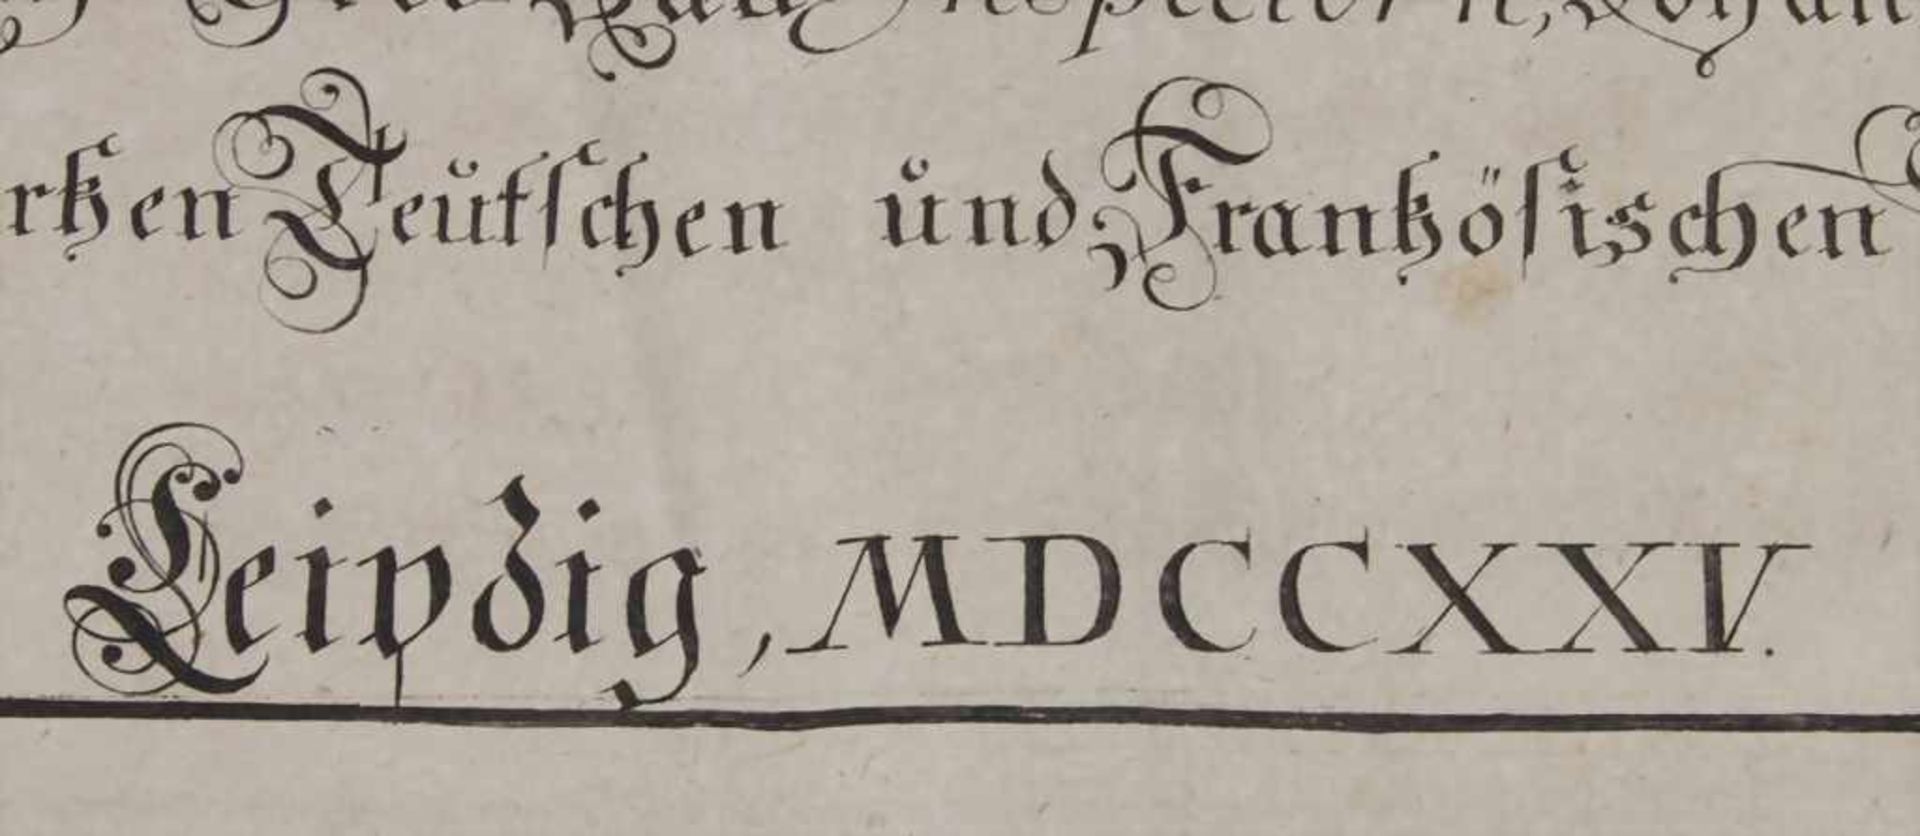 Inspectorn,
Teütſchen und Frantzöſischen
Leipzig, MDCCXXV.